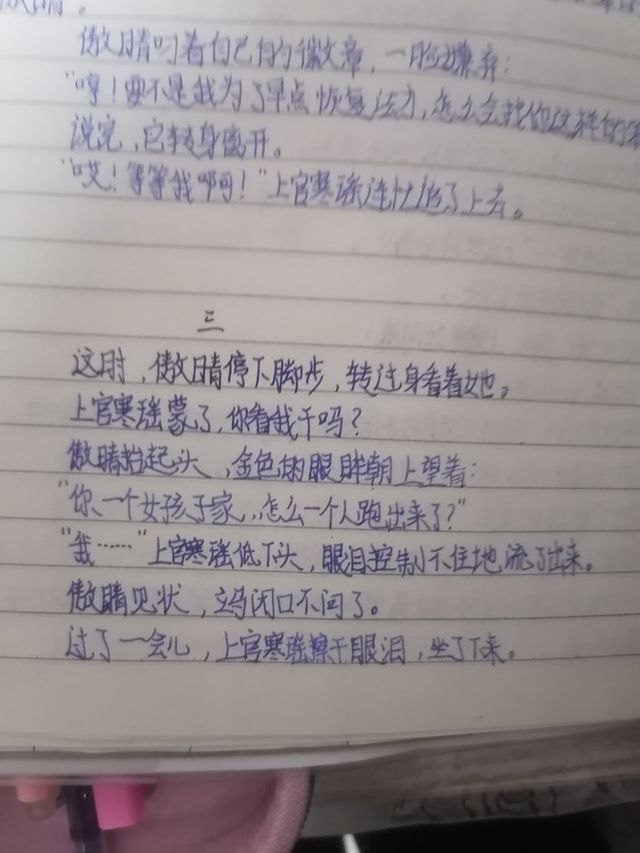 傲晴叼着自己的徽章，一脸嫌弃：
“哼！要不是我为了早点恢复法力，怎么会找你这样的
说完，它转身离开。
“哎！等等我啊！”上官寒瑶连忙追了上去。
三
这时，傲晴停下脚步，转过身看着她。
上官寒瑶蒙了，你看我干吗？
傲晴抬起头，金色的眼眸朝上望着：
“你一个女孩子家，怎么一个人跑出来了？”
“我……”上官寒瑶低下头，眼泪控制不住地流了出来。
傲晴见状，立马闭口不问了。
过了一会儿，上官寒瑶擦干眼泪，坐了下来。